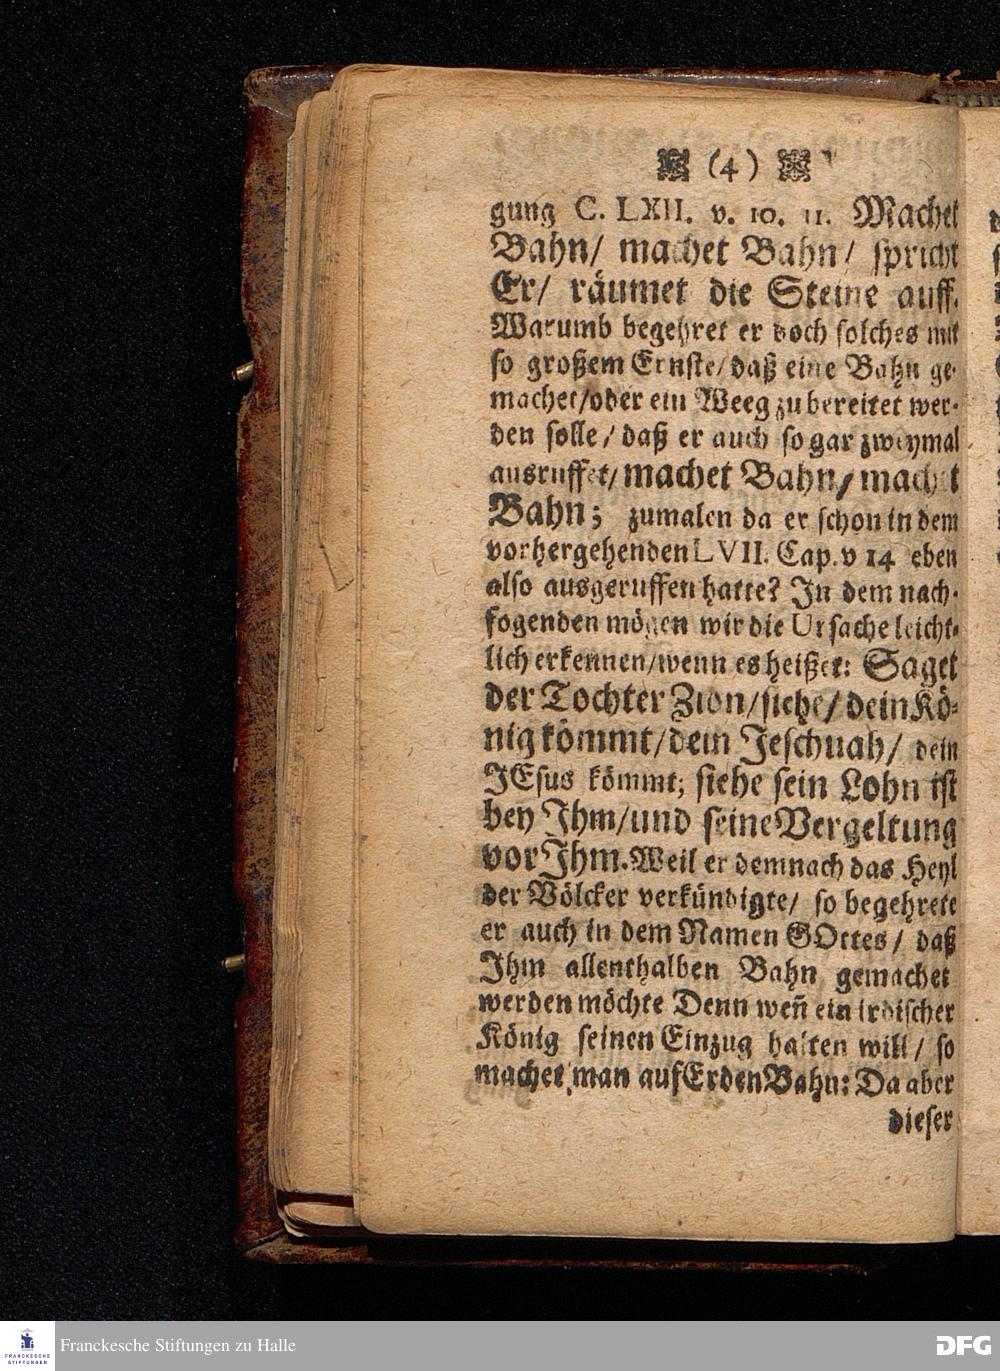 (4)
gung C. LXII. v. 10. 11. Machet
Bahn/ machet Bahn/ spricht
Er/ räumet die Steine auff.
Warumb begehret er doch solches mit
so großem Ernste/daß eine Bahn ge-
machet/oder ein Weeg zu bereitet wer-
den solle/daß er auch so gar zweymal
ausruffet/machet Bahn/machet
Bahn; zumalen da er schon in dem
vorhergehenden LVII. Cap. v 14 eben
also ausgeruffen hatte? In dem nach-
fogenden mögen wir die Ursache leicht-
lich erkennen/wenn es heißet: Saget
der Tochter Zion/siehe/dein Kö-
nig kömmt/dein Jeschuah/ dein
JEsus kömmt; siehe sein Lohn ist
bey Ihm/und seine Vergeltung
vor Ihm. Weil er demnach das Heyl
der Völcker verkündigte/ so begehrete
er auch in dem Namen GOttes/ daß
Ihm allenthalben Bahn gemachet
werden möchte Denn weñ ein irdischer
König seinen Einzug halten will/ so
machet man auf Erden Bahn: Da aber
dieser
FRANCKESCHE STIFTUNGEN
Franckesche Stiftungen zu Halle
DFG